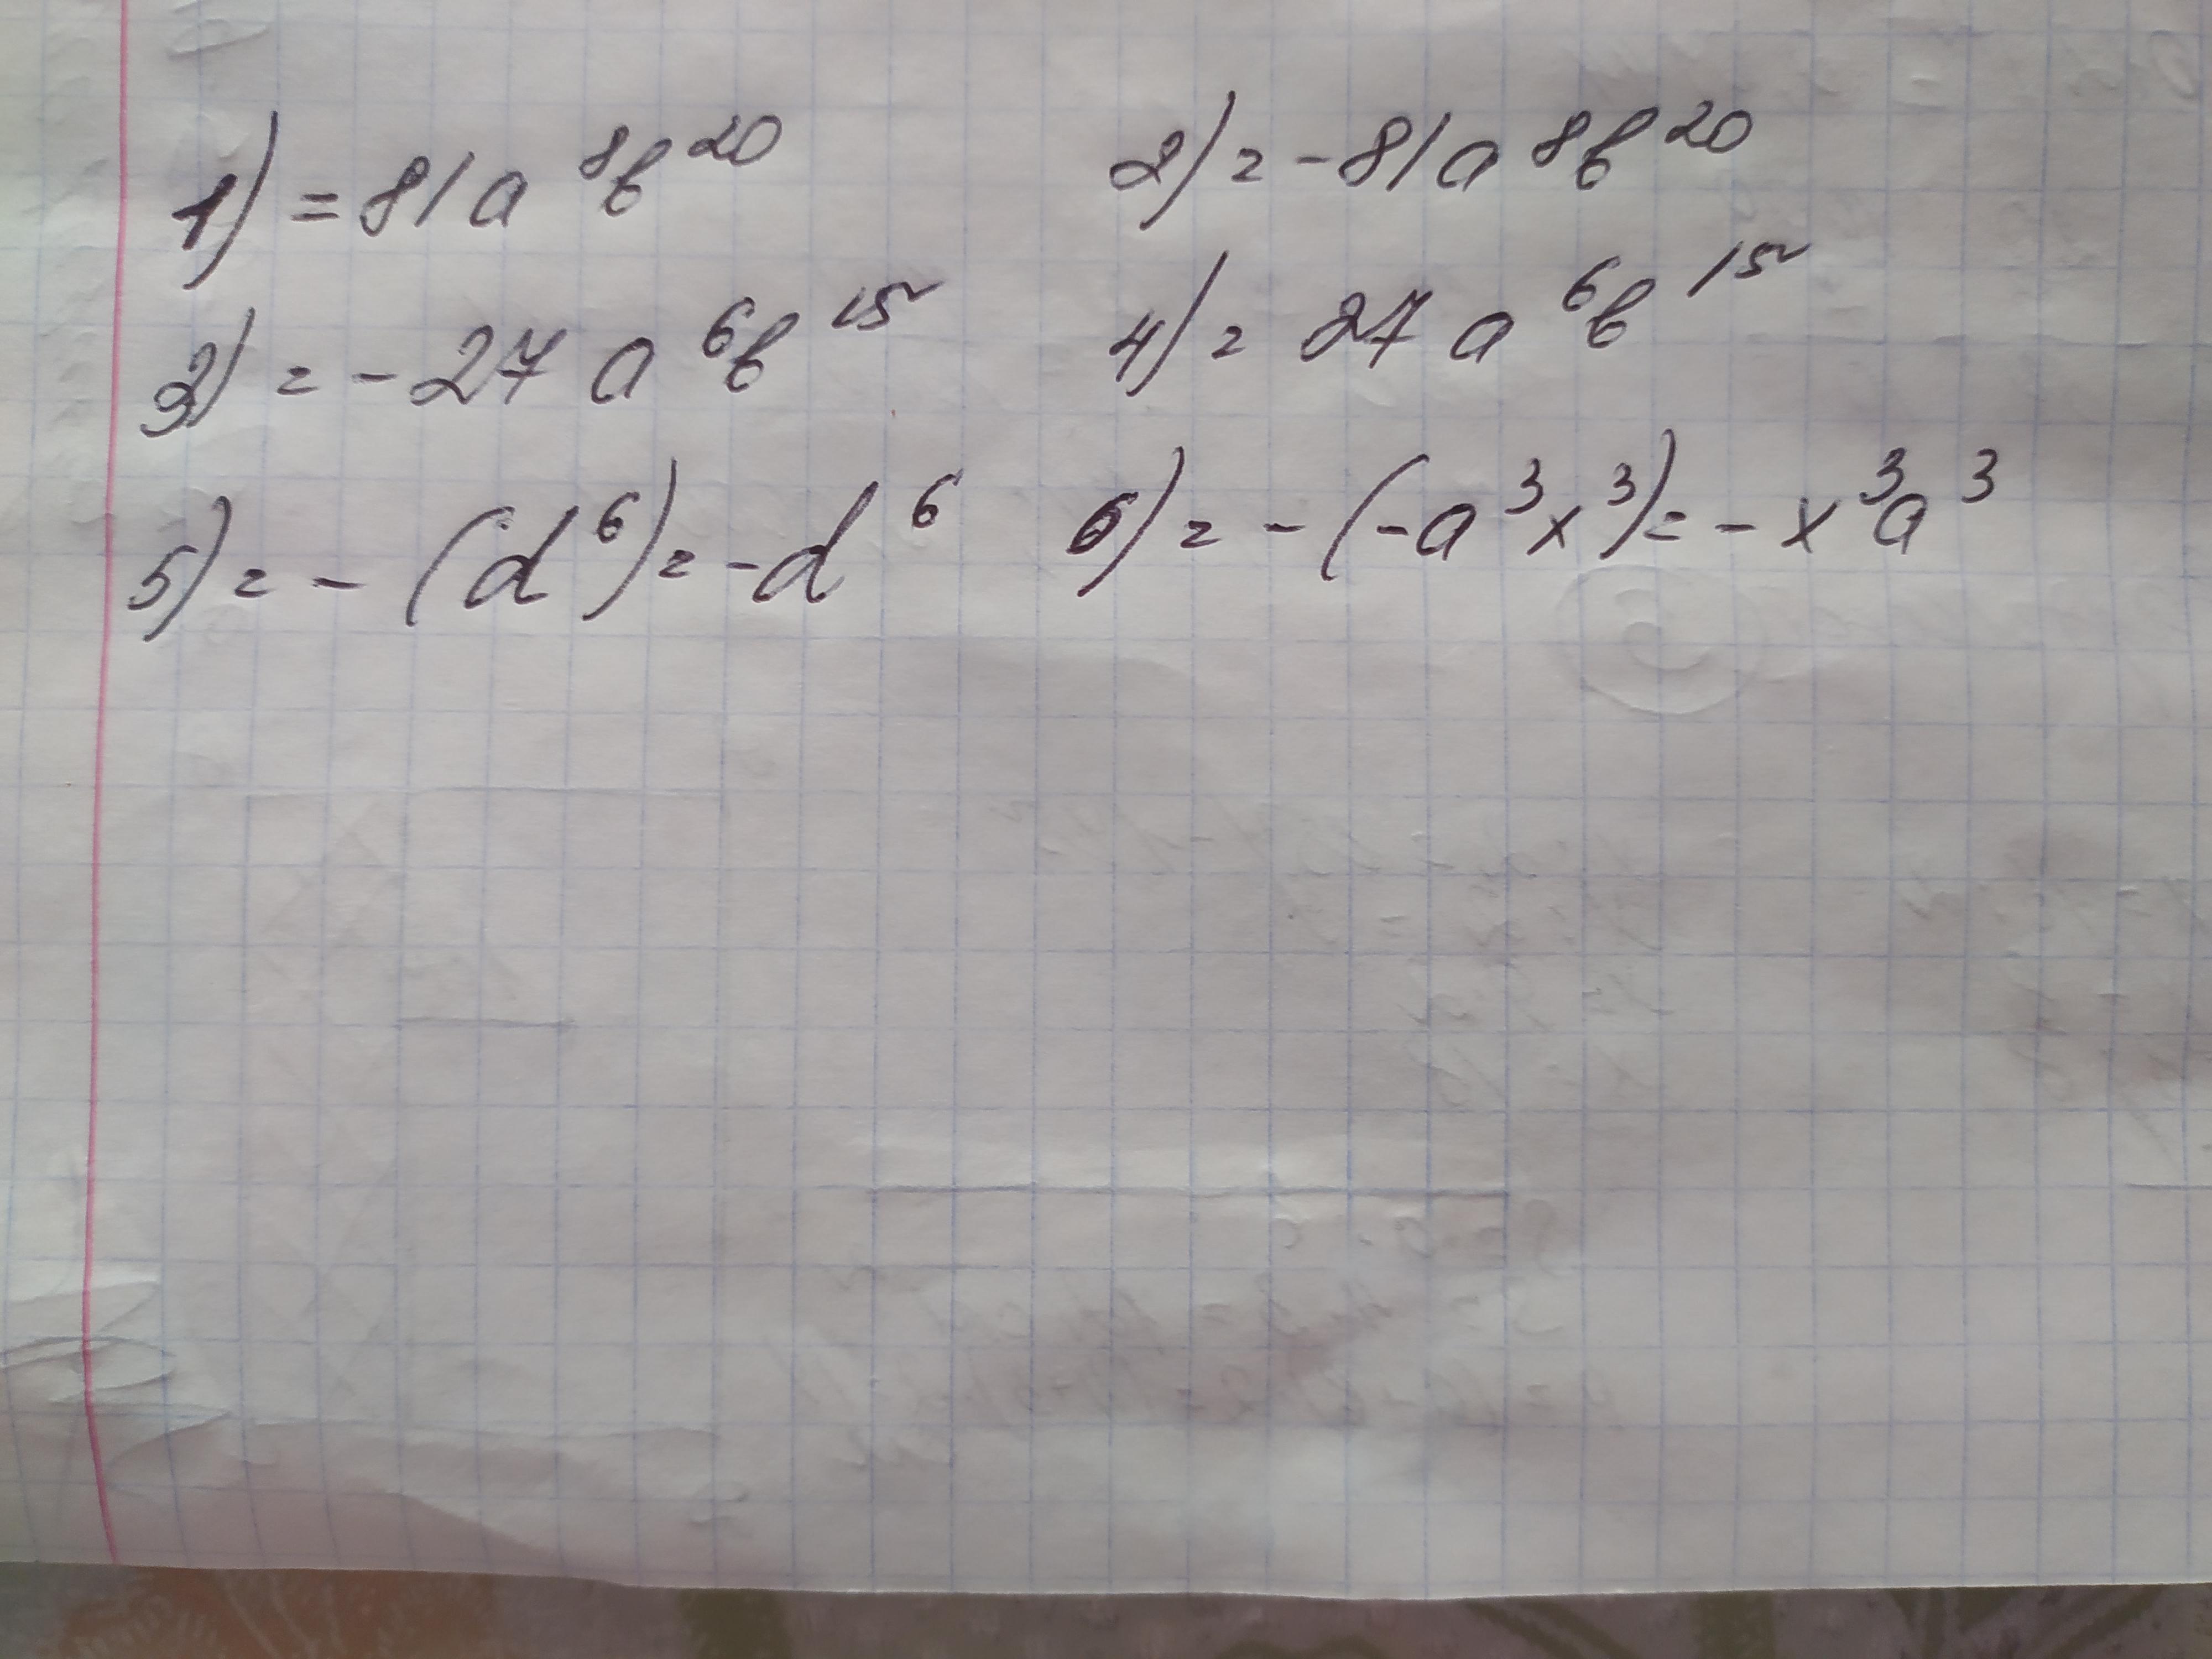 1) = 81a⁸b²⁰ 2) = -81a⁸b²⁰
3) = -27a⁶b¹⁵ 4) = 27a⁶b¹⁵
5) = -(d⁶) = -d⁶ 6) = -(-a³x³) = -x³a³